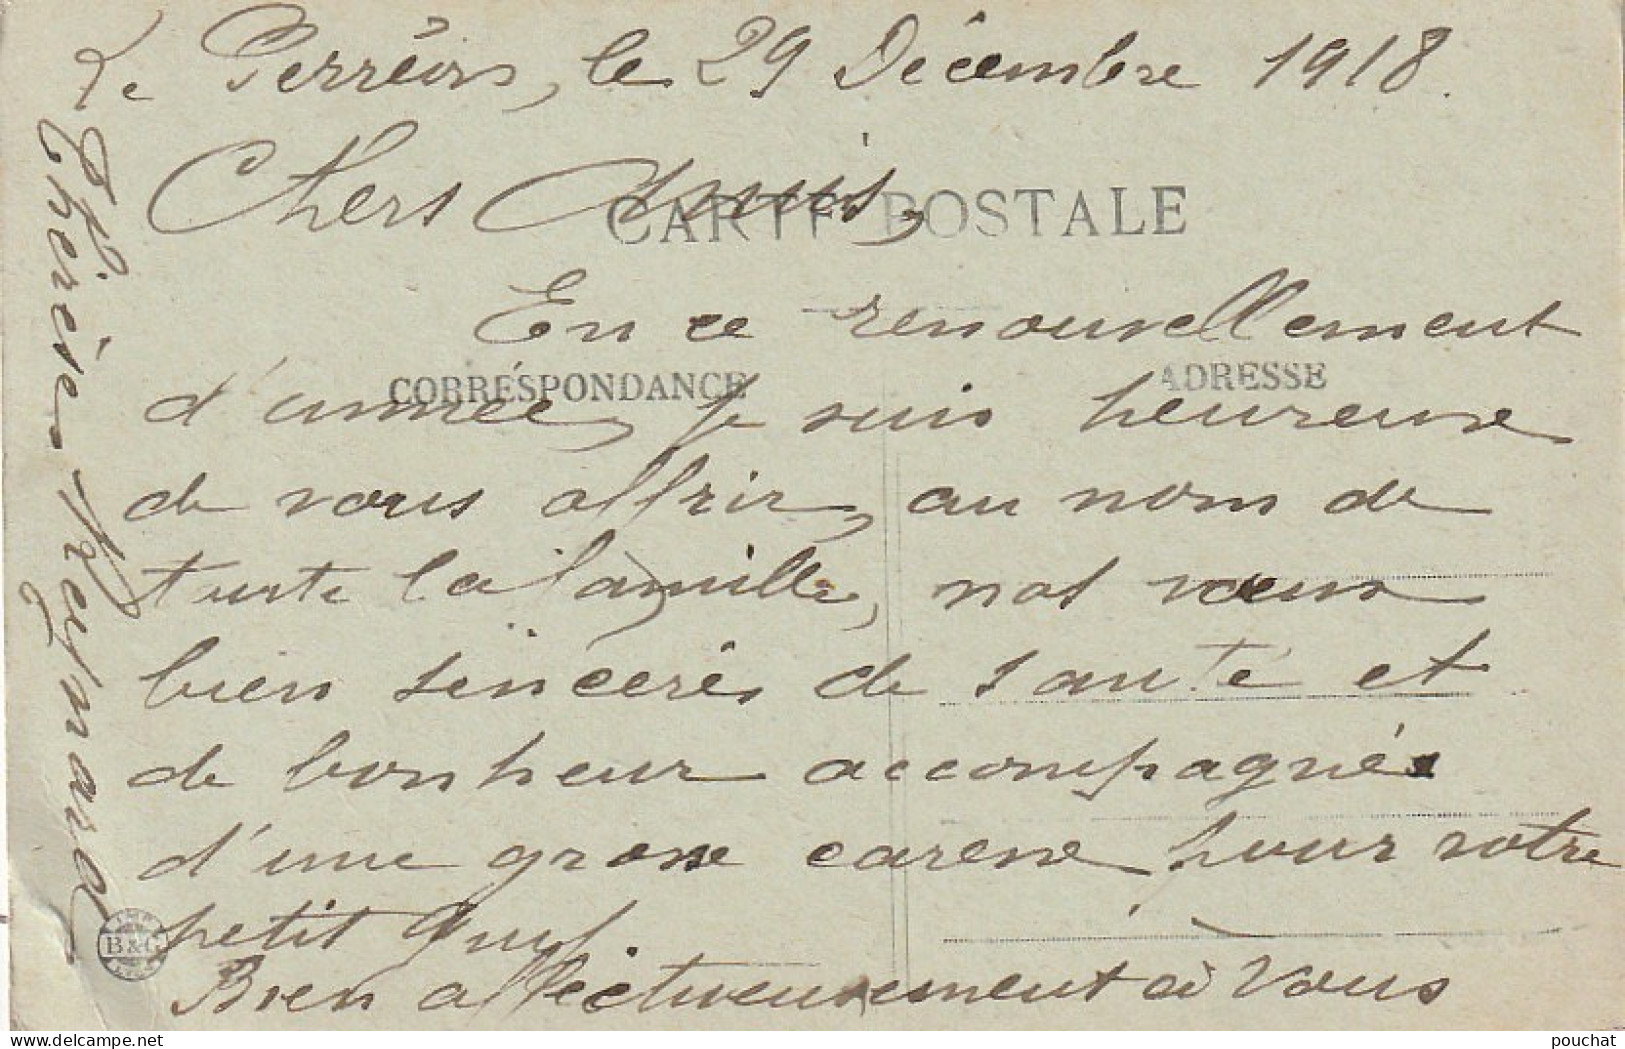 Le Perréon, le 29 Décembre 1918.
Chers Amis,
CARTE POSTALE
En ce renouvellement
CORRESPONDANCE
ADRESSE
d'année, je suis heureuse
de vous offrir, au nom de
toute la famille, nos vœux
bien sincères de santé et
de bonheur accompagnés
d'une grosse caresse pour votre
petit Guy.
Bien affectueusement à vous
Thérèse Reymard
IMP
B&G
LYON
www.delcampe.net
pouchat